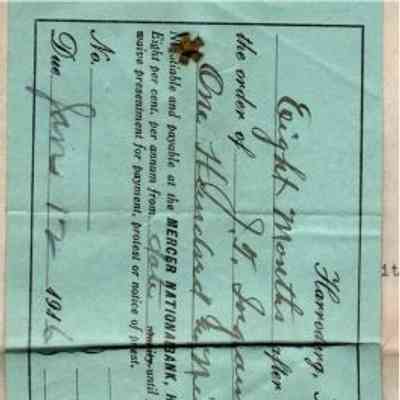 Harrodsburg,
Eight Months after
the order of J. T. Ingram
One Hundred
Negotiable and payable at the MERCER NATIONAL BANK, H
Eight per cent. per annum from date until
waive presentment for payment, protest or notice of protest.
No.
Due Jan 12 1916
it